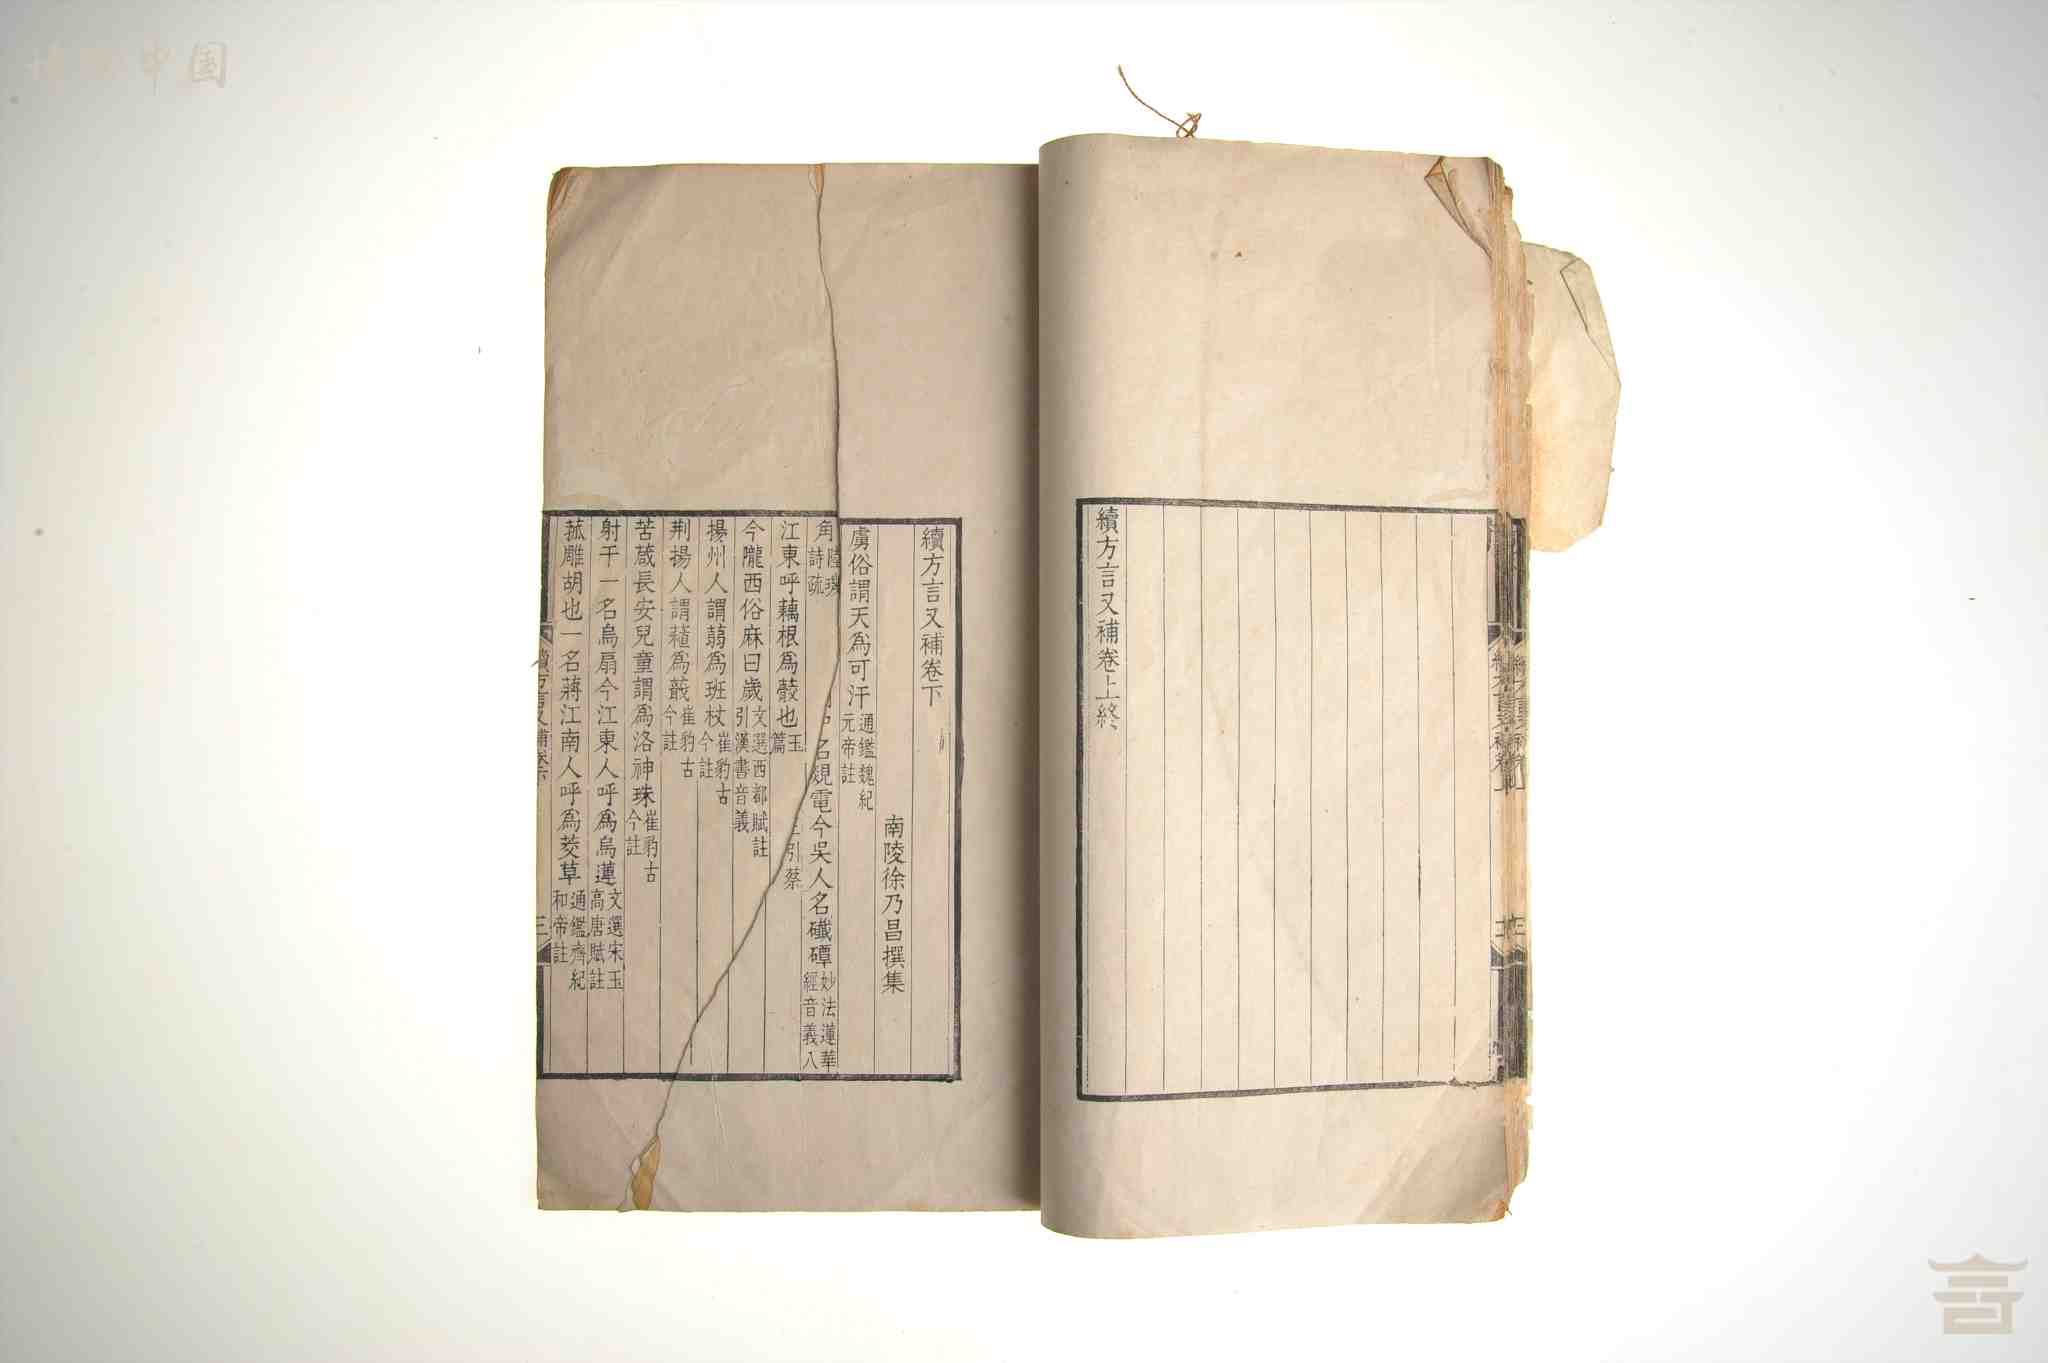 續方言又補卷上終
續方言又補卷下
南陵徐乃昌撰集
虜俗謂天爲可汗通鑑魏紀元帝註
名覢電今吳人名磹妙法蓮華經音義八
角詩疏 引蔡
江東呼藕根爲也玉篇
今隴西俗麻曰歲文選西都賦註引漢書音義
揚州人謂蒻爲班杖崔豹古今註
荆揚人謂爲蕺崔豹古今註
苦葴長安兒童謂爲洛神珠崔豹古今註
射干一名烏扇今江東人呼爲烏蓮文選宋玉高唐賦註
菰雕胡也一名蔣江南人呼爲茭草通鑑齊紀和帝註
三
中国